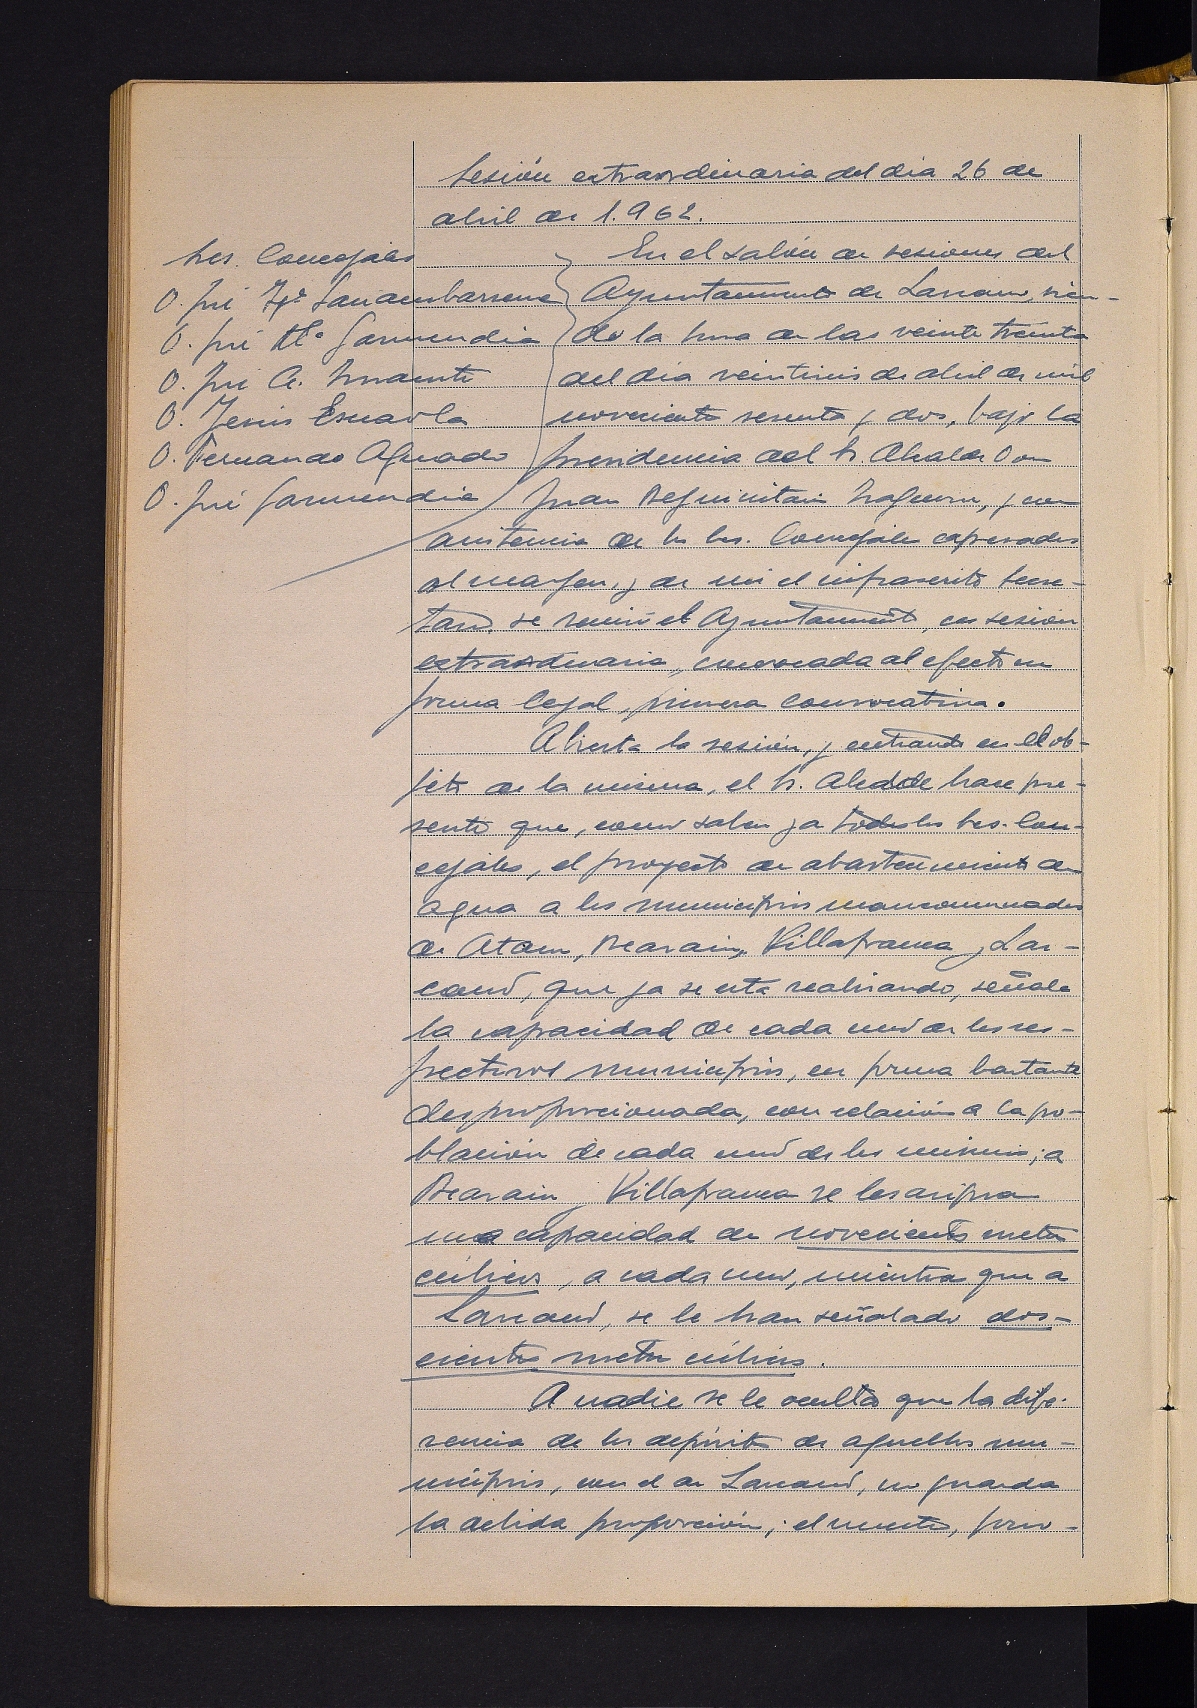 Sesión extraordinaria del dia 26 de
abril de 1.962.
Sres. Concejales
D. José Mª
D. José Mª Garmendia
D. José A.
D. Jesús Esnaola
D. Fernando Aguado
D. José Garmendia
En el salón de sesiones del
Ayuntamiento de Lazcano, sien-
do la hora de las veinte treinta
del día veintiseis de abril de mil
novecientos sesenta y dos, bajo la
presidencia del Sr. Alcalde Don
Juan, y con
asistencia de los Sres. Concejales expresados
al margen, y de mi el infrascrito Secre-
tario, se reunió el Ayuntamiento, en sesión
extraordinaria, convocada al efecto en
forma legal, primera convocatoria.
Abierta la sesión, y entrando en el ob-
jeto de la misma, el Sr. Alcalde hace pre-
sente que, como saben ya todos los Sres. Con-
cejales, el proyecto de abastecimiento de
agua a los municipios mancomunados
de Ataun, Beasain, Villafranca y Laz-
cano, que ya se está realizando, señala
la capacidad de cada uno de los res-
pectivos municipios, en forma bastante
desproporcionada, con relación a la po-
blación de cada uno de los mismos; a
Beasain y Villafranca se les asigna
una capacidad de novecientos metros
cúbicos, a cada uno, mientras que a
Lazcano, se le han señalado dos-
cientos metros cúbicos.
A nadie se le oculta que la dife-
rencia de los depósitos de aquellos mu-
nicipios, con el de Lazcano, no guarda
la debida proporción; el nuestro, pro-